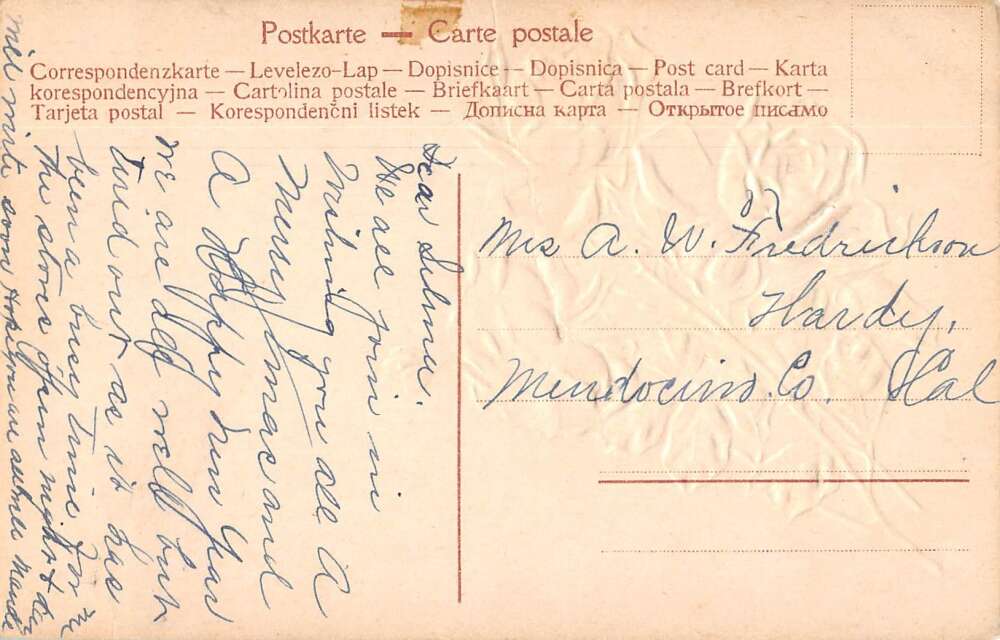 Postkarte — Carte postale
Correspondenzkarte — Levelezo-Lap — Dopisnice — Dopisnica — Post card — Karta
korespondencyjna — Cartolina postale — Briefkaart — Carta postala — Brefkort —
Tarjeta postal — Korespondenčni listek — Дописна карта — Открытое письмо
Dear Selma.
We all join in
Wishing you all A
Merry Xmas and
A Happy New Year
We are all well but
Tired out as it has
been a busy Time For
The stores open night & day
Will write soon Hope you are all
Mrs A. W. Fredrickson
Hardy,
Mendocino. Co. Cal